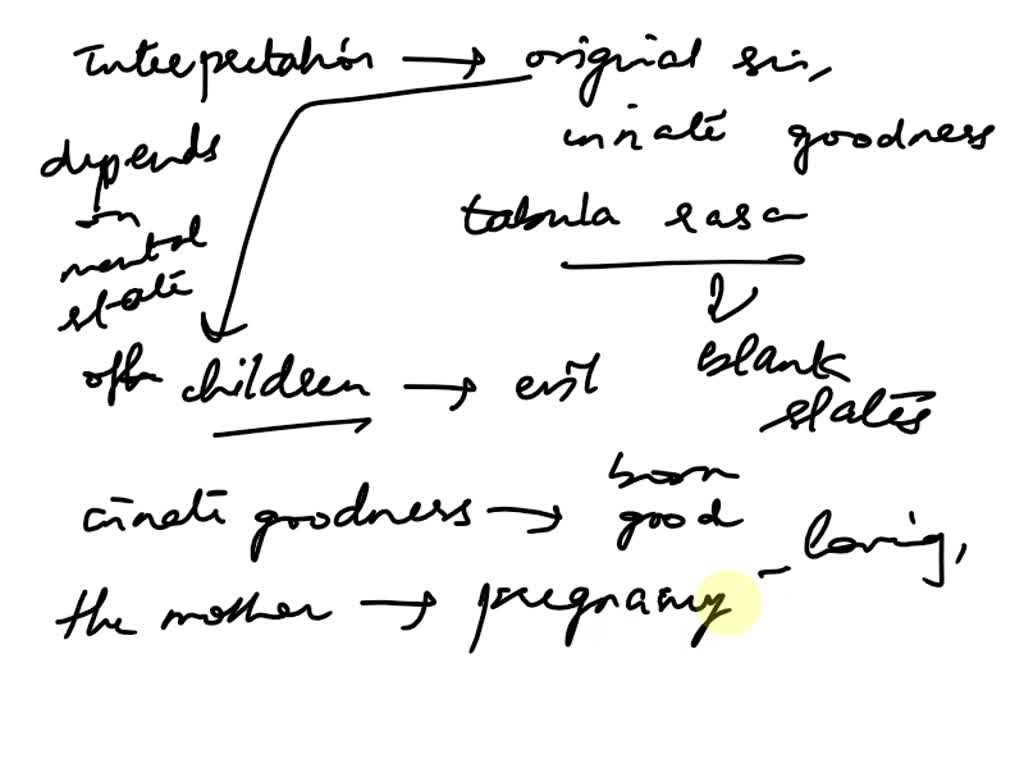 Interpretation → original sin,
innate goodness
depends
on
mental
state
tabula rasa
blank
slates
of children → evil
innate goodness → born
good
the mother → pregnancy - loving,